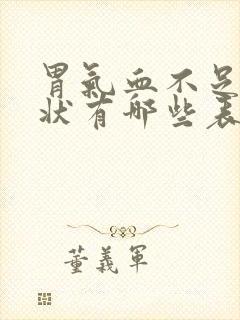 胃氣血不足
狀有哪些表
董義軍